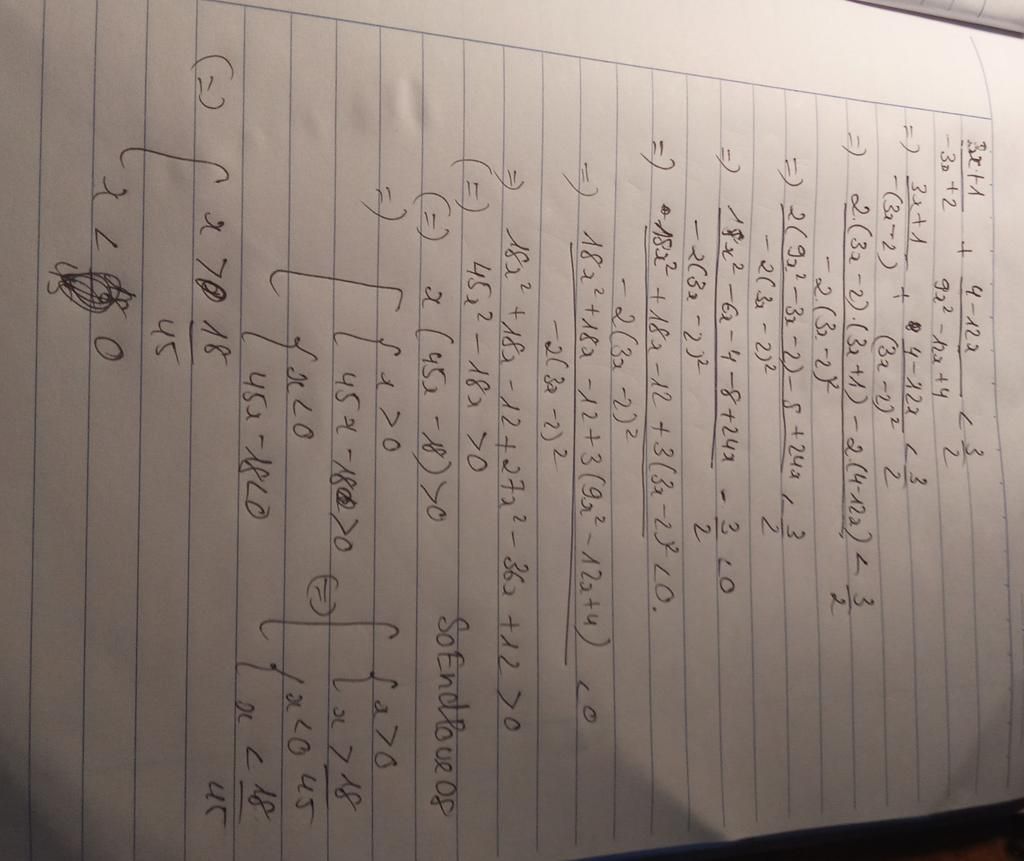 3x+1/-3x+2 + 4-12x/9x²-12x+4 < 3/2
=) 3x+1/-(3x-2) + 4-12x/(3x-2)² < 3/2
=) 2.(3x-2).(3x+1) - 2.(4-12x)/-2.(3x-2)² < 3/2
=) 2(9x²-3x-2) - 8+24x/-2(3x-2)² < 3/2
=) 18x²-6x-4-8+24x/-2(3x-2)² - 3/2 < 0
=) 18x²+18x-12+3(3x-2)²/-2(3x-2)² < 0.
=) 18x²+18x-12+3(9x²-12x+4)/-2(3x-2)² < 0
=) 18x²+18x-12+27x²-36x+12 > 0
(=) 45x²-18x > 0
(=) x(45x-18) > 0 SoEndlove08
=) [ { x > 0
45x-18 > 0
{ x < 0
45x-18 < 0
(=) [ { x > 0
x > 18/45
{ x < 0
x < 18/45
(=) [ x > 18/45
x < 0